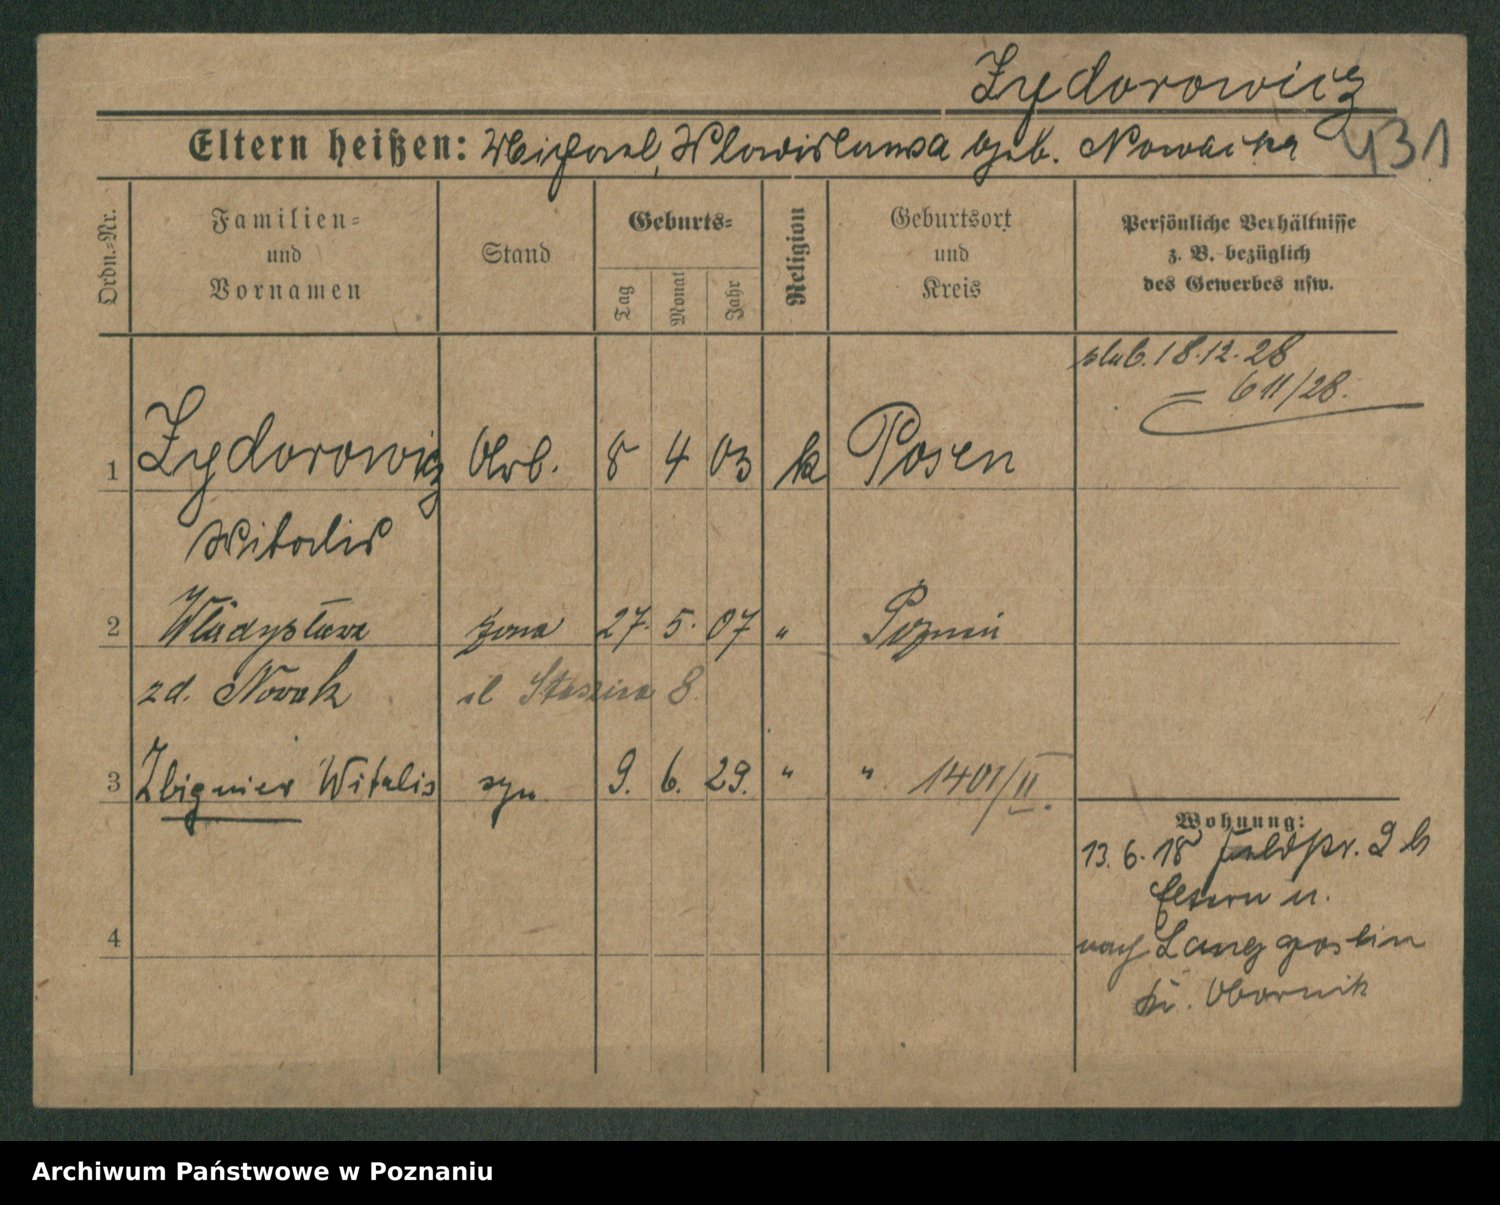 Zydorowicz
Eltern heißen: Michael, Wladislawa geb. Nowacka 431
Ordn.-Nr.
Familien- und Vornamen
Stand
Geburts-
Tag
Monat
Jahr
Religion
Geburtsort und Kreis
Persönliche Verhältnisse
z. B. bezüglich
des Gewerbes usw.
ślub. 18.12.28
= 611/28.
1 Zydorowicz Arb. 8 4 03 k Posen
Witalis
2 Władysława żona 27. 5. 07 " Poznań
zd. Nowak ul Staszica 8.
3 Zbigniew Witalis syn 9. 6. 29. " " 1401/II.
Wohnung:
13. 6. 18 Feldstr. 9 b
Eltern u.
4
nach Langgoslin
Kr. Obornik
Archiwum Państwowe w Poznaniu